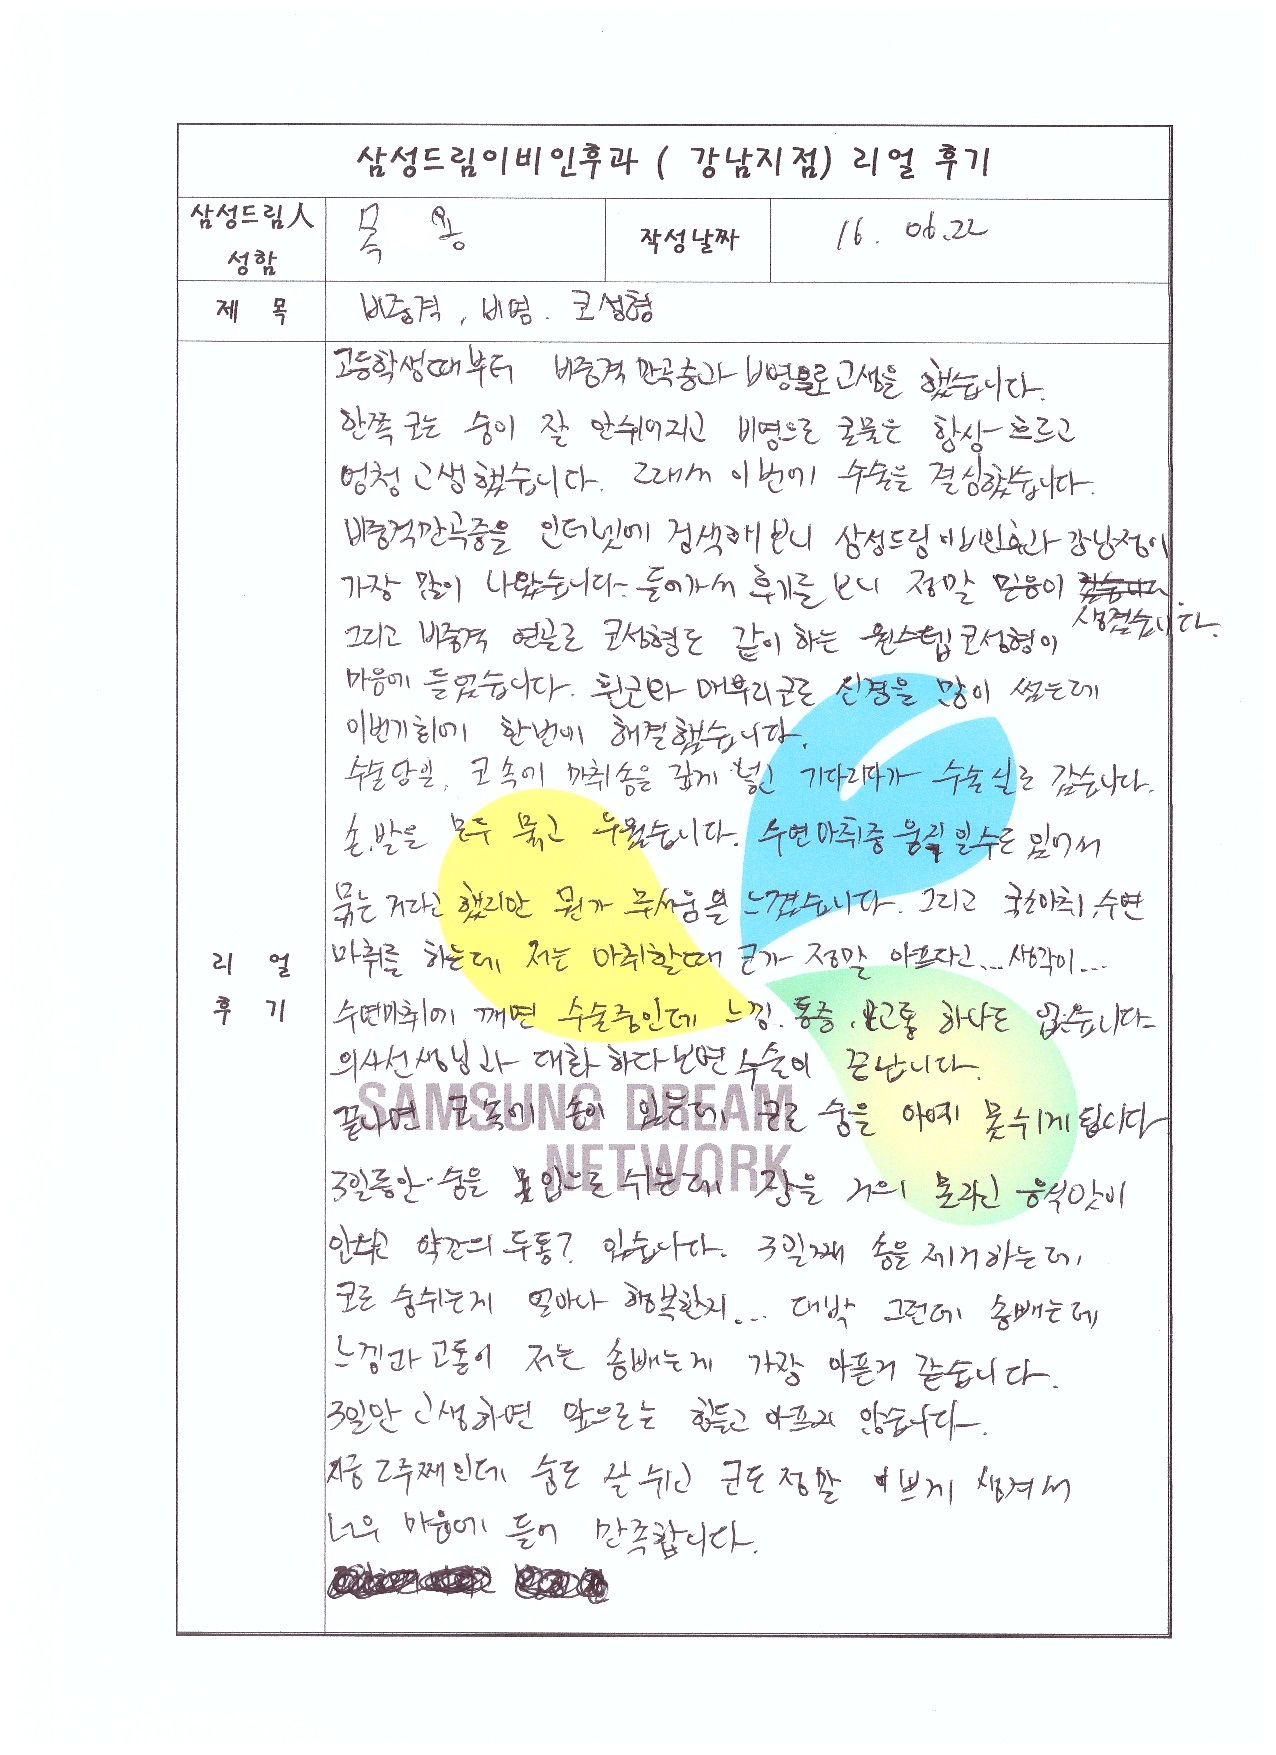 삼성드림이비인후과 ( 강남지점) 리얼 후기
삼성드림人 성함 목 용 작성날짜 16. 06.22
제 목 비중격, 비염. 코성형
리 얼 후 기
고등학생때부터 비중격 만곡증과 비염으로 고생을 했습니다.
한쪽 코는 숨이 잘 안쉬어지고 비염으로 콧물은 항상 흐르고
엄청 고생했습니다. 그래서 이번에 수술을 결심했습니다.
비중격만곡증을 인터넷에 검색해보니 삼성드림이비인후과 강남점이
가장 많이 나왔습니다. 들어가서 후기를 보니 정말 믿음이 생겼습니다.
그리고 비중격 연골로 코성형도 같이 하는 원스텝 코성형이
마음에 들었습니다. 휜코와 매부리코로 신경을 많이 썼는데
이번기회에 한번에 해결했습니다.
수술당일, 코 속에 마취솜을 깊게 넣고 기다리다가 수술실로 갔습니다.
손,발을 모두 묶고 누웠습니다. 수면마취중 움직일수도 있어서
묶는 거라고 했지만 뭔가 무서움을 느꼈습니다. 그리고 국소마취,수면
마취를 하는데 저는 마취할때 코가 정말 아프다고... 생각이...
수면마취에 깨면 수술중인데 느낌, 통증, 고통 하나도 없습니다
의사선생님과 대화 하다보면 수술이 끝납니다.
끝나면 코 속에 솜이 있는데 코로 숨을 아예 못쉬게 됩니다
3일동안 숨을 입으로 쉬는데 잠을 거의 못자고 음식맛이
안나고 약간의 두통? 있습니다. 3일째 솜을 제거하는데
코로 숨쉬는게 얼마나 행복한지... 대박 그런데 솜빼는데
느낌과 고통이 저는 솜빼는게 가장 아픈거 같습니다.
3일만 고생하면 앞으로는 힘들고 아프지 않습니다.
지금 2주째인데 숨도 잘 쉬고 코도 정말 이쁘게 생겨서
너무 마음에 들어 만족합니다.
SAMSUNG DREAM
NETWORK